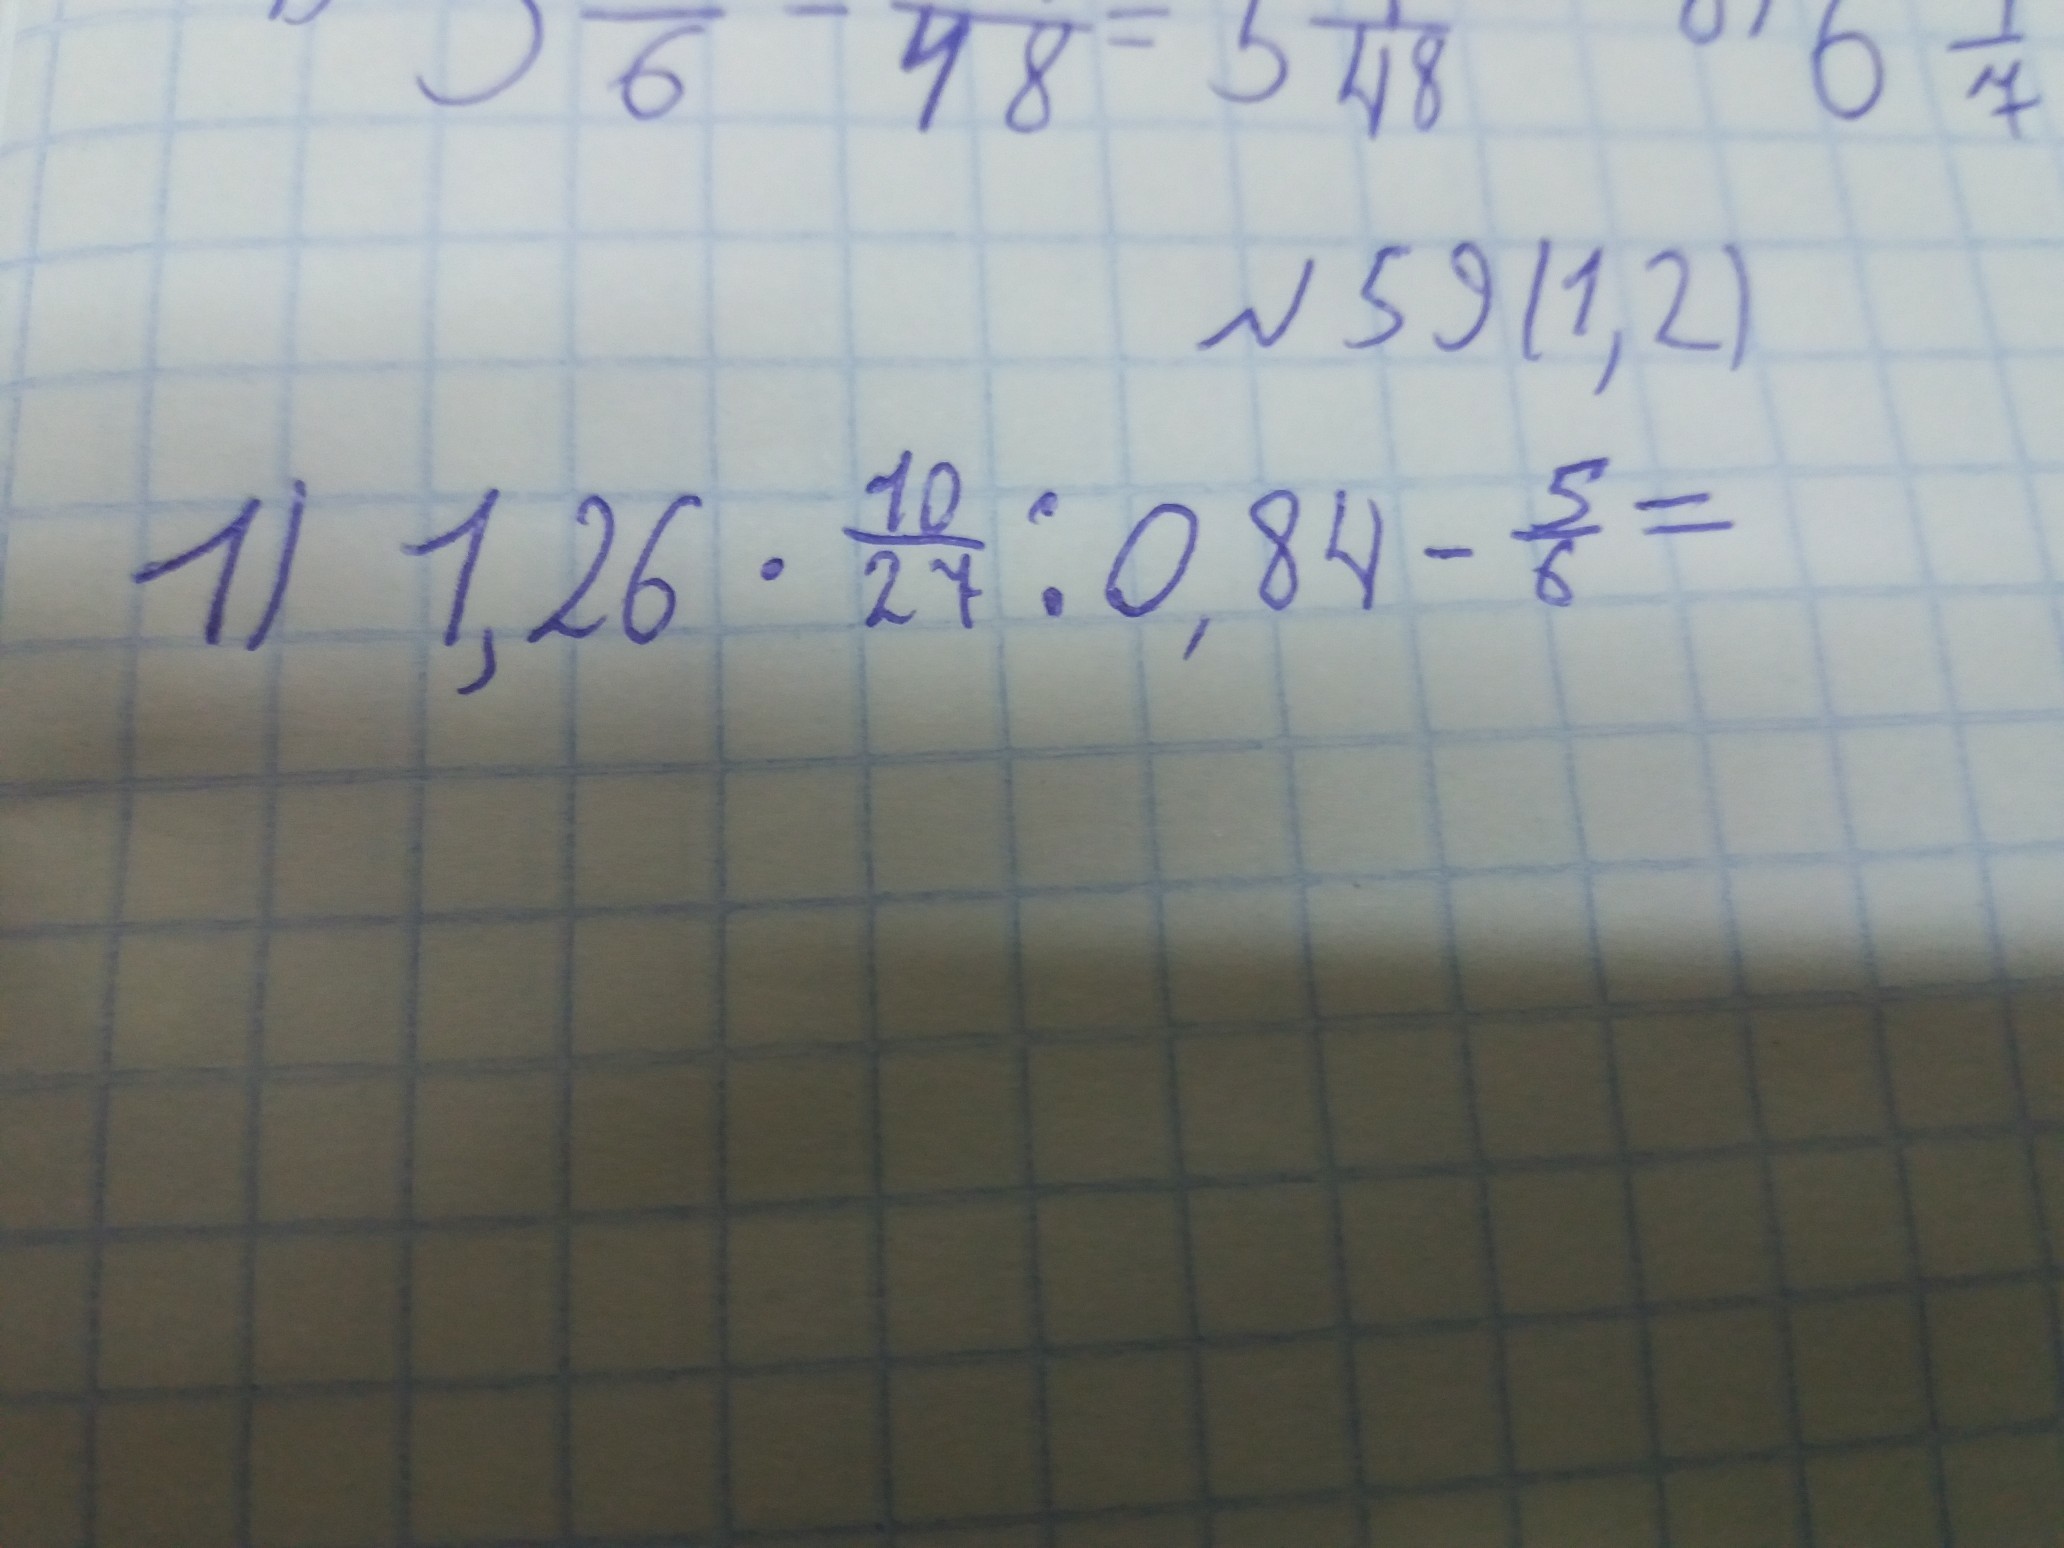 6 - 48 = 5 1/48 6 1/7
N 59 (1,2)
1) 1,26 · 10/27 : 0,84 - 5/6 =